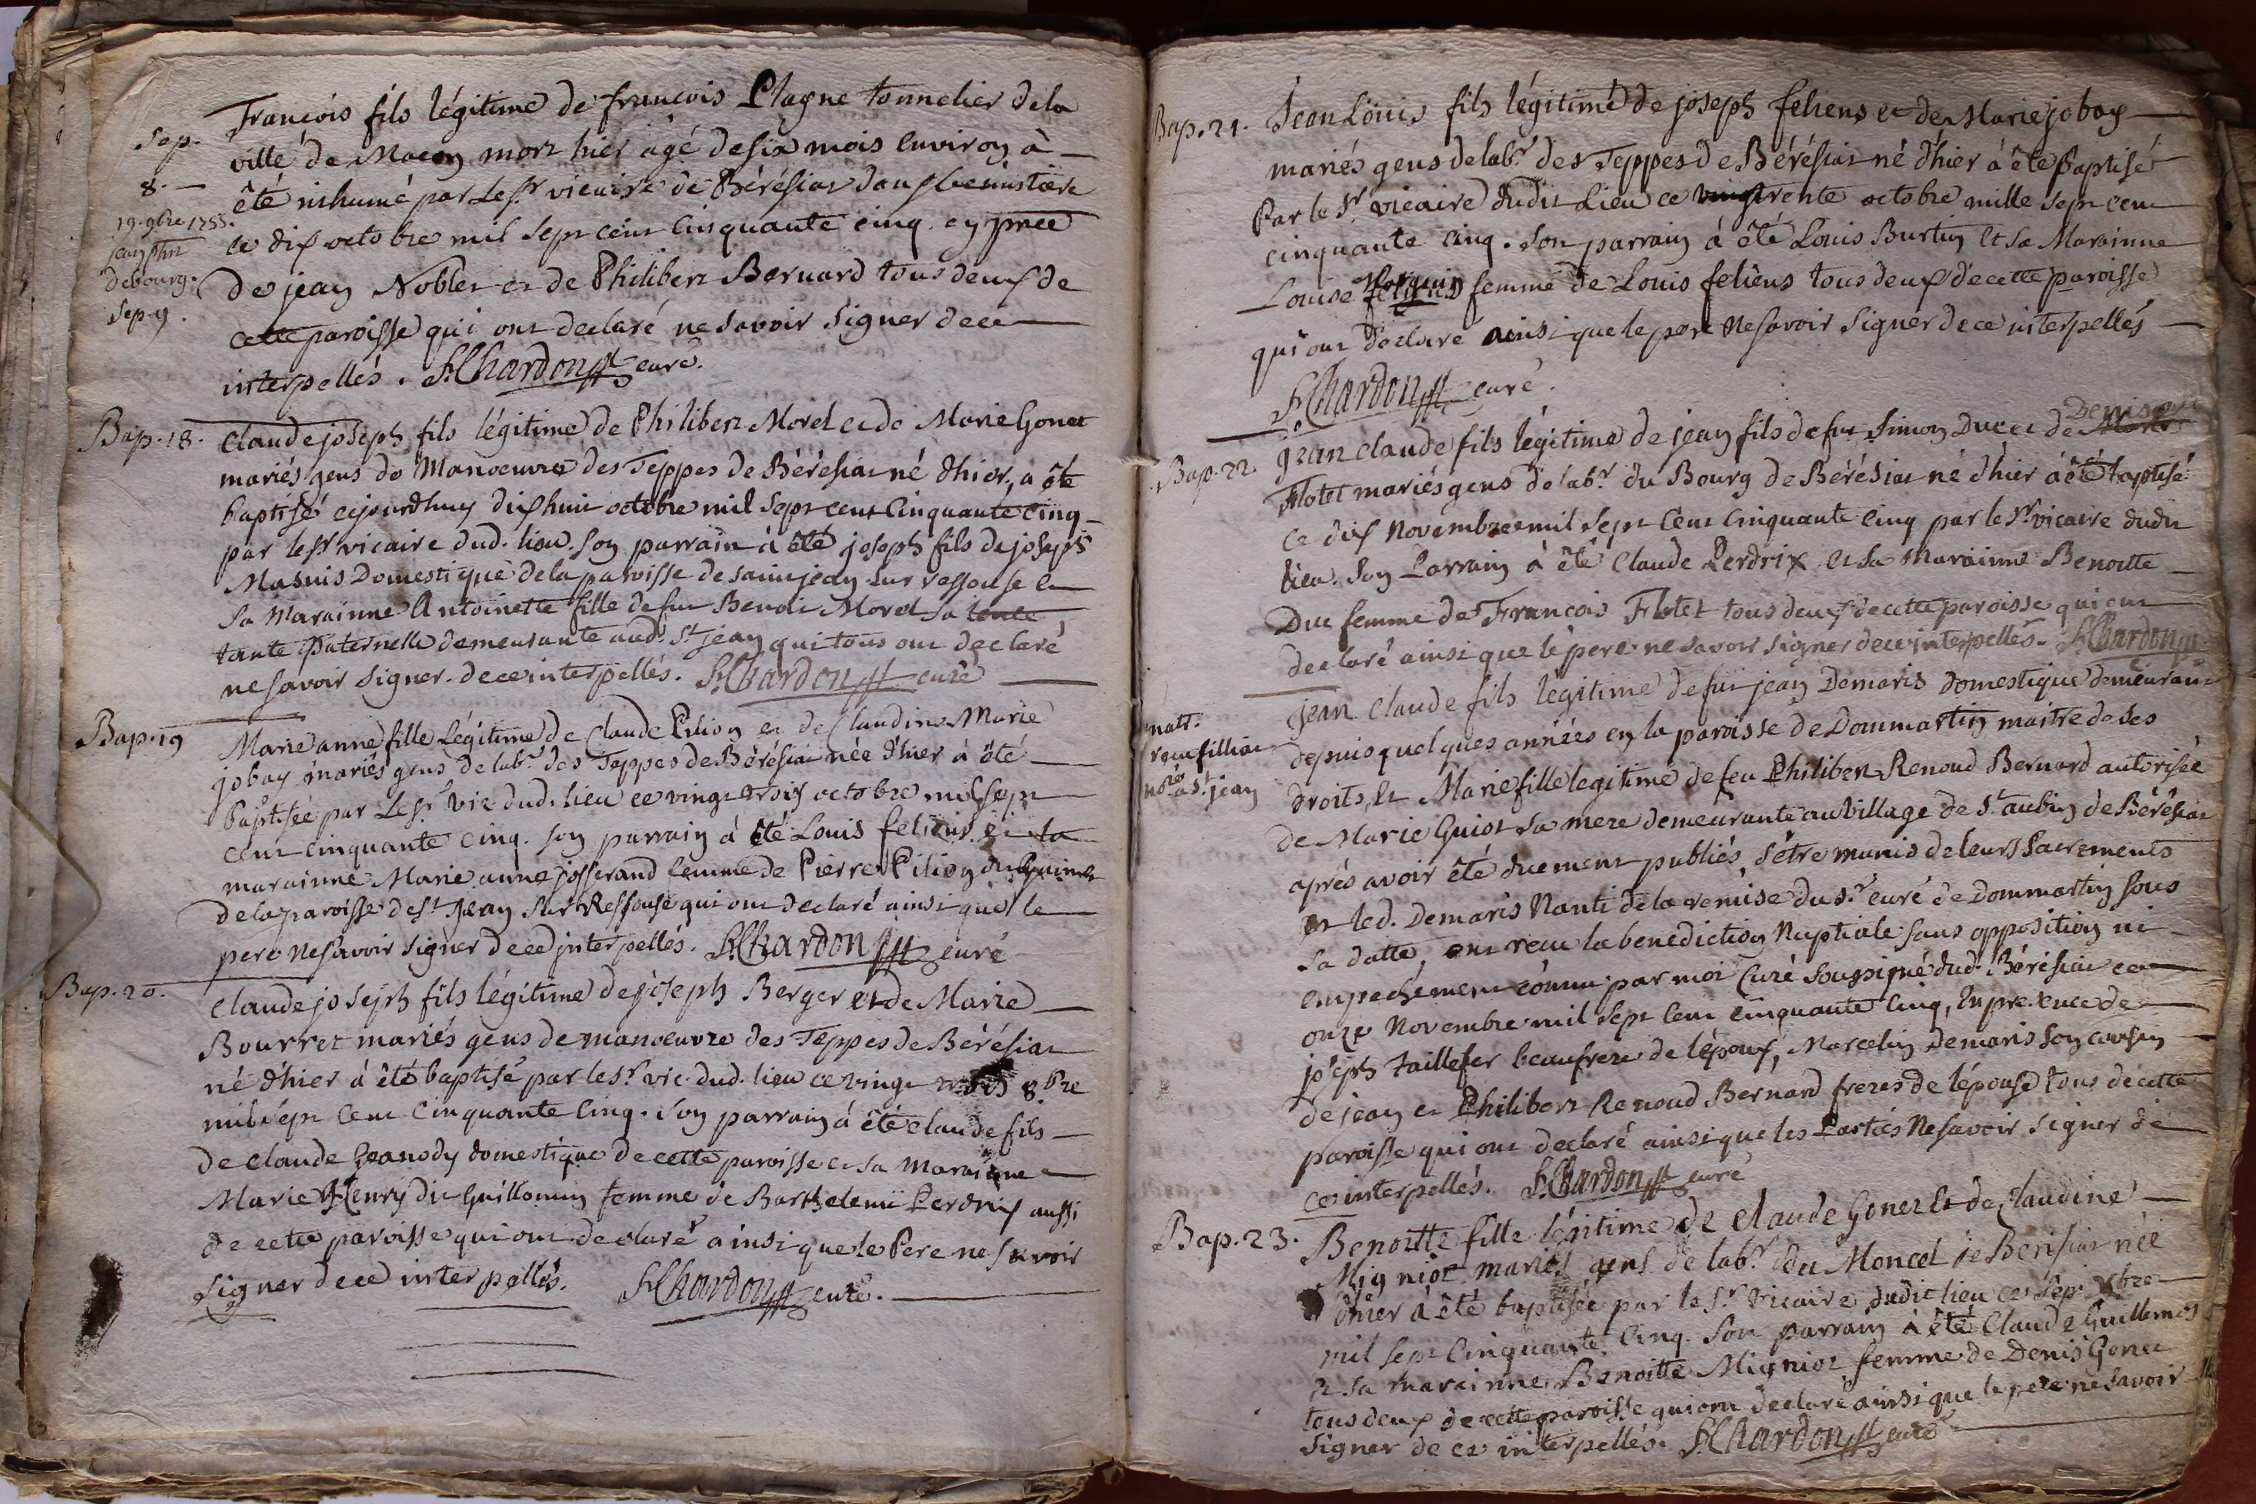 Sep.
8.
19. 9bre 1755.
jean phil
debourg.
Sep 9.
François fils légitime de françois Plagne tonnelier de la
ville de Macon mort hier âgé de six mois environ à
êté inhumé par le Sr vicaire de Bérésiat dans le cimistiere
ce dix octobre mil sept cent cinquante cinq. en pnce
de jean Noblet et de Philibert Bernard tous deux de
cette paroisse qui ont declaré ne savoir signer de ce
interpellés. F. Chardon curé.
Bap. 18.
Claude joseph fils légitime de Philibert Morel et de Marie Gonet
mariés gens de Manoeuvre des Teppes de Bérésiat né d'hier, a êté
baptisé cejourdhuy dixhuit octobre mil sept cent cinquante cinq
par le Sr vicaire dud. lieu. son parrain à êté joseph fils de joseph
Masuis Domestique de la paroisse de saint jean sur ressouse et
sa Marainne Antoinette fille de fut Benoit Morel sa tente
tante paternelle demeurante aud. St jean qui tous ont declaré
ne savoir signer. de ce interpellés. F. Chardon curé
Bap. 19
Marie anne fille légitime de Claude Pilion et de Claudine Marie
jobay mariés gens de labr. des Teppes de Bérésiat née d'hier à êté
baptisée par le Sr. vic. dud. lieu ce vingt trois octobre mil sept
cent cinquante cinq. son parrain à êté Louis feliens et la
marainne Marie anne josserand femme de Pierre Pilion
de la paroisse de St Jean sur Ressouse qui ont declaré ainsi que le
pere ne savoir signer de ce interpellés. F. Chardon curé
Bap. 20.
Claude joseph fils légitime de joseph Berger et de Marie
Bourret mariés gens de manoeuvre des Teppes de Bérésiat
né d'hier à êté baptisé par le Sr. vic. dud. lieu ce vingt trois 8.bre
mil sept cent cinquante cinq. son parrain à êté claude fils
de claude domestique de cette paroisse et sa maraigne
Marie Henry dit Guillomin femme de Barthelemi Perdrix aussi
de cette paroisse qui ont declaré ainsi que le Pere ne savoir
signer de ce interpellés. F. Chardon curé.
Bap. 21.
Jean Louis fils légitime de joseph feliens et de Marie jobay
mariés gens de labr. des Teppes de Bérésiat né d'hier à êté Baptisé
Par le Sr. vicaire dudit Lieu ce trente octobre mille sept cent
cinquante cinq. son parrain à êté Louis Burtin et sa Marainne
Louise femme de Louis feliens tous deux de cette paroisse
qui ont déclaré ainsi que le pere ne savoir signer de ce interpellés
F. Chardon curé.
Bap. 22.
Jean claude fils légitime de jean fils de fut Simon Duc et de Denise
Flotet mariés gens de labr. du Bourg de Bérésiat né d'hier à êté baptisé
ce dix Novembre mil sept cent cinquante cinq par le Sr. vicaire dudit
lieu. Son Parrain à êté Claude Perdrix et sa Marainne Benoitte
Duc femme de François Flotet tous deux de cette paroisse qui ont
declaré ainsi que le pere ne savoir signer de ce interpellés. F. Chardon
Jean Claude fils légitime de fut jean Demaris domestique demeurant
depuis quelques années en la paroisse de Dommartin maitre de ses
droits, et Marie fille legitime de feu Philibert Renoud Bernard autorisée
de Marie Guiot sa mere demeurante au Village de St. aubin de Bérésiat
après avoir êté duement publiés, s'être munis de leurs Sacrements
et led. Demaris Nanti de la remise du Sr. curé de Dommartin sous
sa datte, ont recu la benediction Nuptiale sans opposition ni
empechement connu par moi Curé Soussigné dud. Bérésiat ce
onze Novembre mil sept cent cinquante cinq, en presence de
joseph taillefer beaufrere de l'époux, Marcelin Demaris son cousin
de jean et Philibert Renoud Bernard freres de l'épouse tous de cette
paroisse qui ont declaré ainsi que les Parties ne savoir signer de
ce interpellés. F. Chardon curé
Bap. 23.
Benoitte fille légitime de Claude Gonet et de Claudine
Migniot mariés gens de labr. du Moncel de Berisiat née
d'hier à êté baptisée par le Sr. vicaire dudit lieu ce
mil sept cinquante cinq. son parrain à êté Claude Guillemot
et sa marainne Benoitte Migniot femme de Denis Gonet
tous deux de cette paroisse qui ont declaré ainsi que le pere ne savoir
signer de ce interpellés. F. Chardon curé